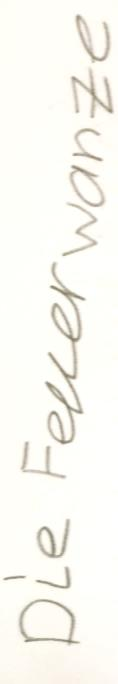 Die Feuerwanze